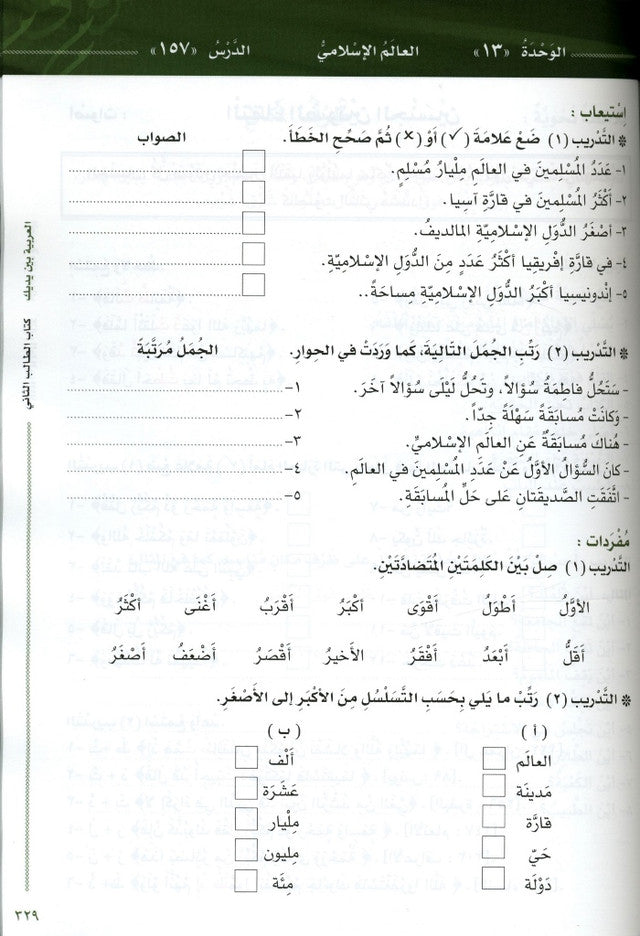 الوَحْدَةُ «١٣» العالَمُ الإسْلاميُّ الدَّرْسُ «١٥٧»
اِسْتيعاب :
* التَّدْريب (١) ضَعْ عَلامَةَ (✓) أَوْ (×) ثُمَّ صَحِّحِ الخَطَأَ. الصواب
١- عَدَدُ المُسْلِمينَ في العالَمِ مِلْيارُ مُسْلِمٍ.
٢- أَكْثَرُ المُسْلِمينَ في قارَّةِ آسِيا.
٣- أَصْغَرُ الدُّوَلِ الإسْلاميَّةِ المالديفُ.
٤- في قارَّةِ إفْريقِيا أَكْثَرُ عَدَدٍ مِنَ الدُّوَلِ الإسْلاميَّةِ.
٥- إنْدونيسِيا أَكْبَرُ الدُّوَلِ الإسْلاميَّةِ مِساحَةً..
* التَّدْريب (٢) رَتِّبِ الجُمَلَ التَّالِيَةَ، كَما وَرَدَتْ في الحِوارِ. الجُمَلُ مُرَتَّبَةً
- سَتَحُلُّ فاطِمَةُ سُؤالاً، وتَحُلُّ لَيْلَى سُؤالاً آخَرَ. ١-
- وَكانَتْ مُسابَقَةً سَهْلَةً جِدّاً. ٢-
- هُناكَ مُسابَقَةٌ عَنِ العالَمِ الإسْلاميِّ. ٣-
- كانَ السُّؤالُ الأوَّلُ عَنْ عَدَدِ المُسْلِمينَ في العالَمِ. ٤-
- اتَّفَقَتِ الصَّديقَتانِ عَلى حَلِّ المُسابَقَةِ. ٥-
مُفْرَدات :
التَّدْريب (١) صِلْ بَيْنَ الكَلِمَتَيْنِ المُتَضادَّتَيْنِ.
الأوَّلُ أَطْوَلُ أَقْوَى أَكْبَرُ أَقْرَبُ أَغْنَى أَكْثَرُ
أَقَلُّ أَبْعَدُ أَفْقَرُ الأَخيرُ أَقْصَرُ أَضْعَفُ أَصْغَرُ
* التَّدْريب (٢) رَتِّبْ ما يَلي بِحَسَبِ التَّسَلْسُلِ مِنَ الأَكْبَرِ إلى الأَصْغَرِ.
( أ ) ( ب )
العالَم أَلْف
مَدينَة عَشَرَة
قارَّة مِلْيار
حَيّ مِليون
دَوْلَة مِئَة
العربية بين يديك كتاب الطالب الثاني
٣٢٩